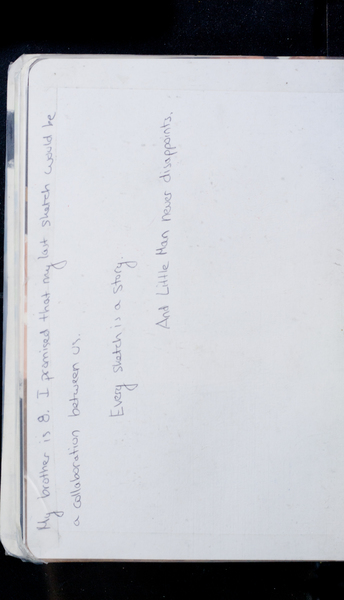 My brother is 8. I promised that my last sketch would be
a collaboration between us.
Every sketch is a story.
And Little Man never disappoints.